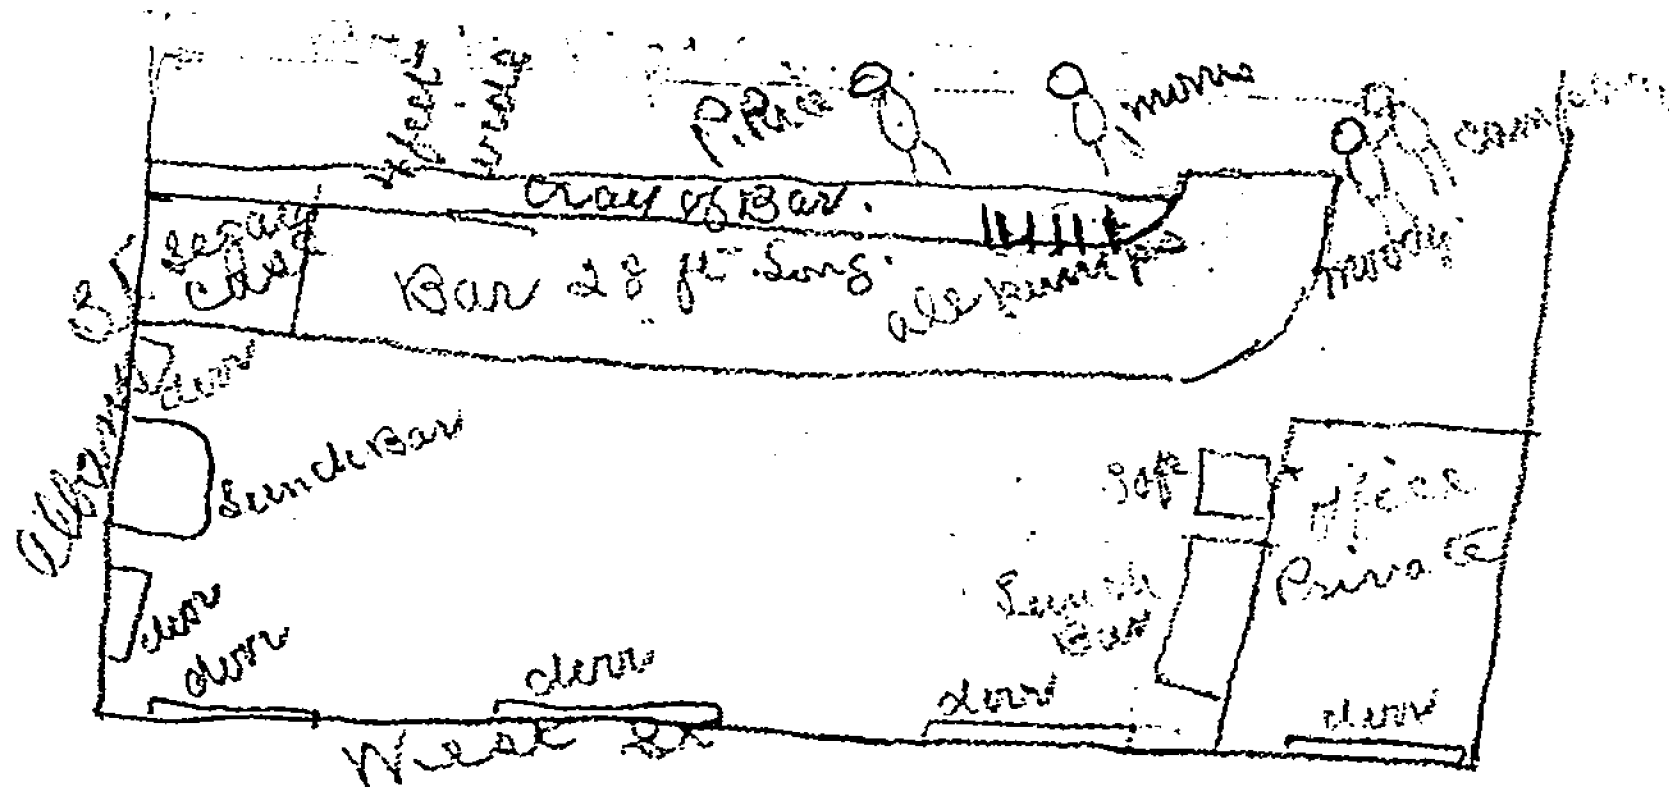 4 feet
wide
P. Rice
Morris
Tray of Bar.
Segar
Case
Bar 28 ft. Long.
ale pumps
Moody
Albany St
door
Lunch Bar
Safe
Office
Private
Lunch
Bar
door
door
door
door
door
West St